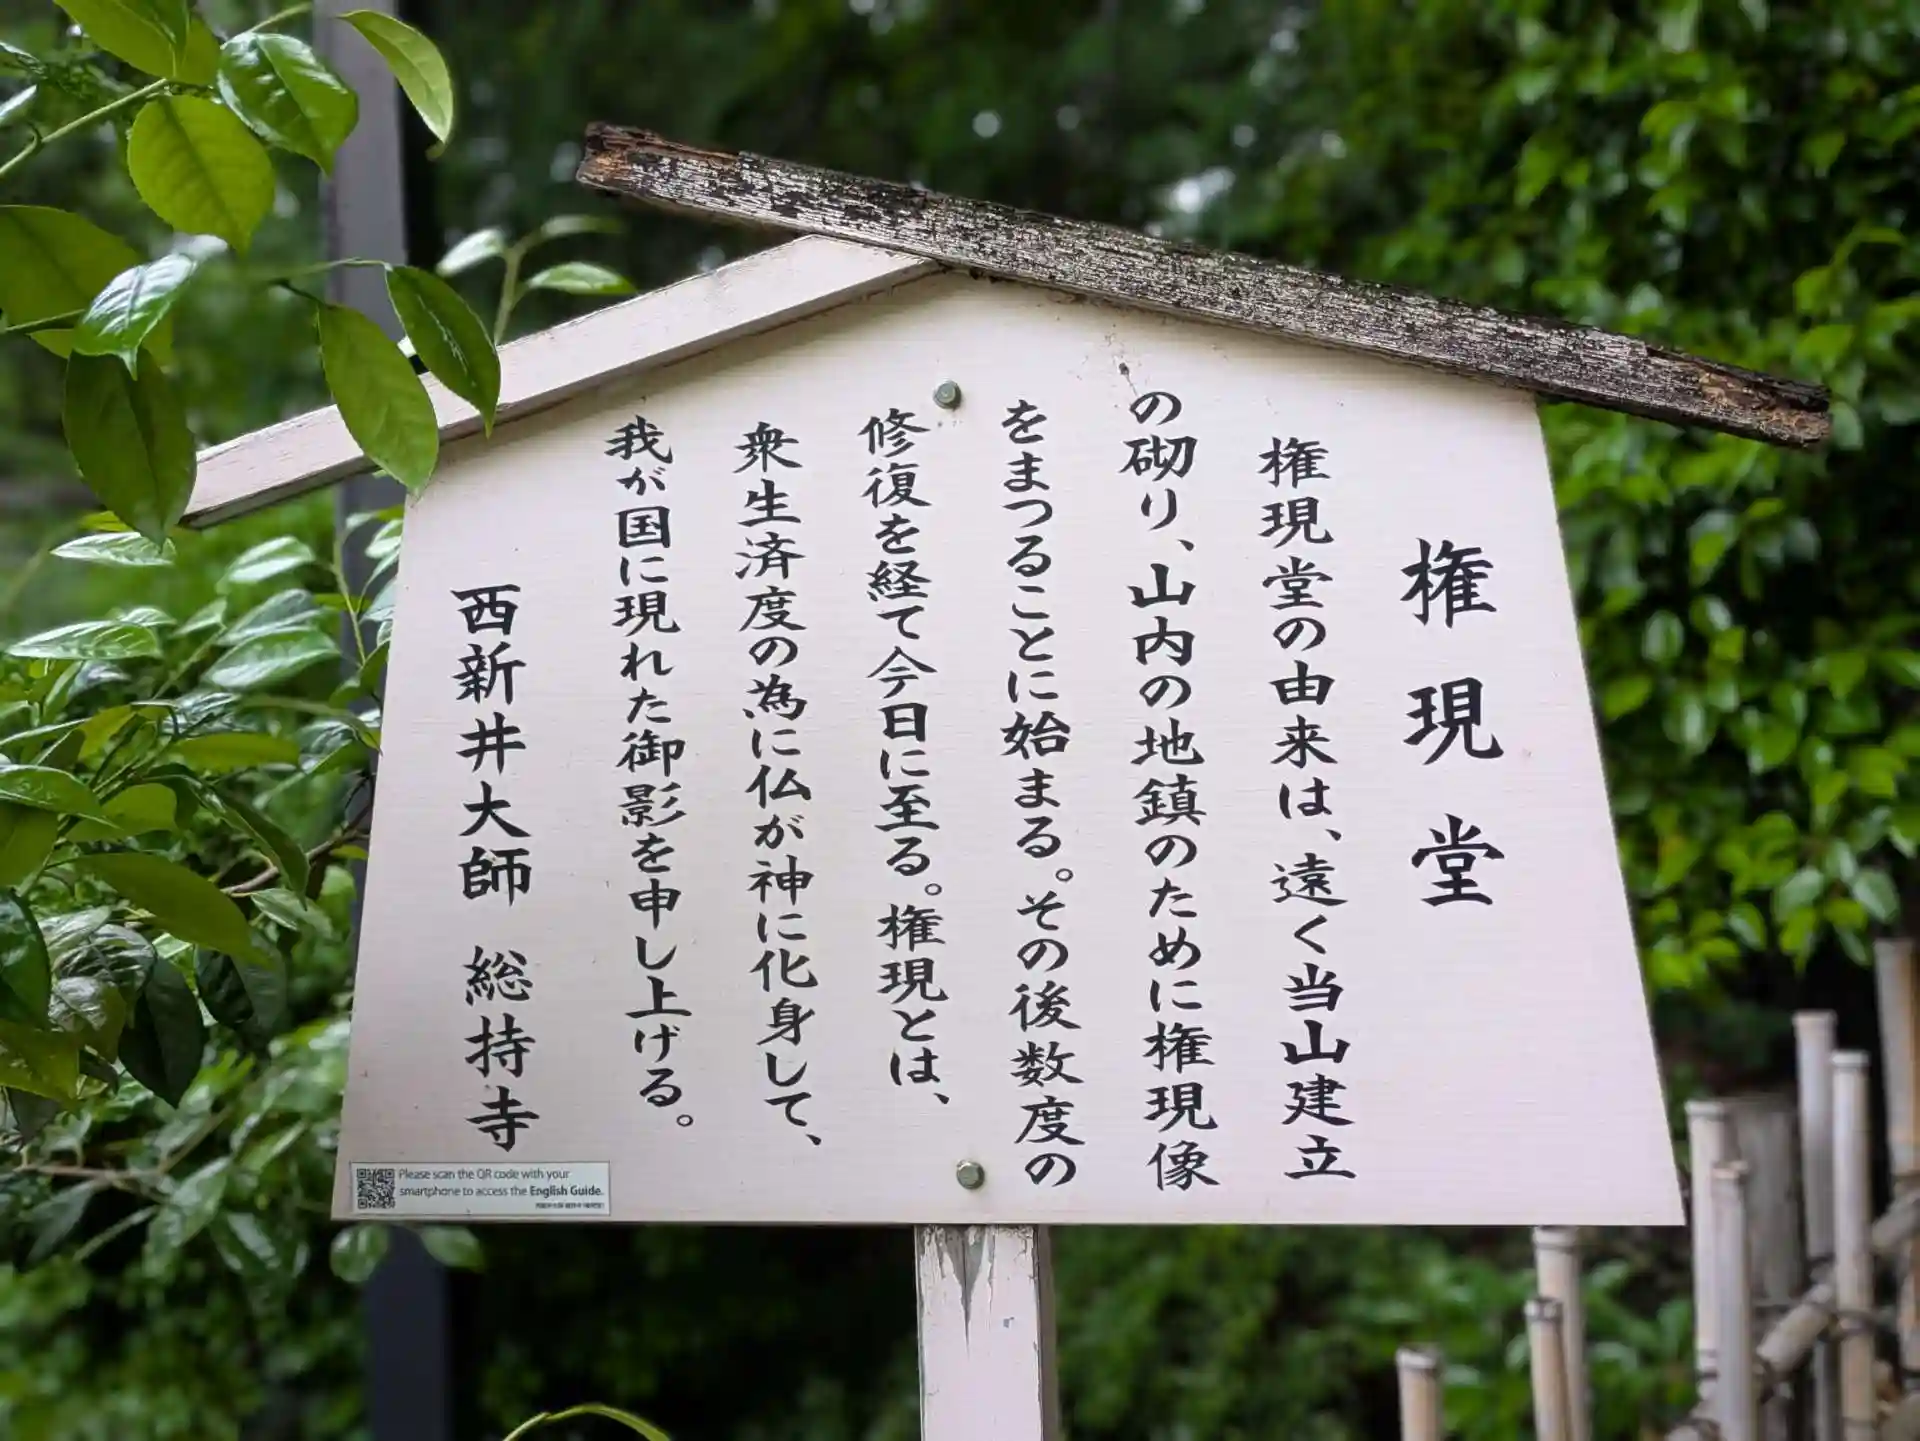 権現堂
権現堂の由来は、遠く当山建立
の砌り、山内の地鎮のために権現像
をまつることに始まる。その後数度の
修復を経て今日に至る。権現とは、
衆生済度の為に仏が神に化身して、
我が国に現れた御影を申し上げる。
西新井大師 総持寺
Please scan the QR code with your
smartphone to access the English Guide.